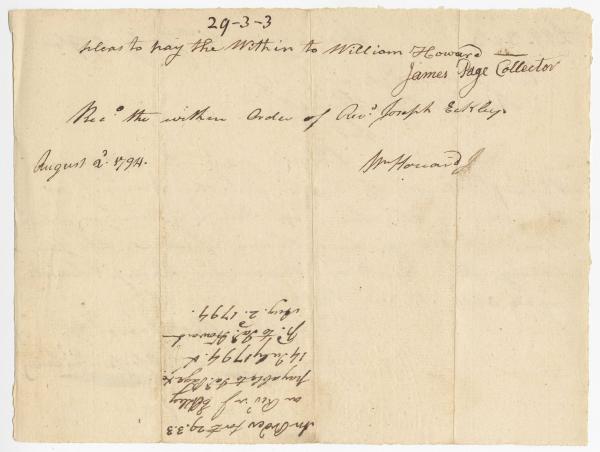 29-3-3
pleas to pay the Within to William Howard
James Page Collector
Rec.d the within Order of Rev.d Joseph Eckley.
August 2.d 1794.
Wm Howard
An Order for £ 29.3.3
on Rev.d J Eckley
payable to Ja.s Page
14 July 1794. &
to Howard
Aug. 2. 1794.